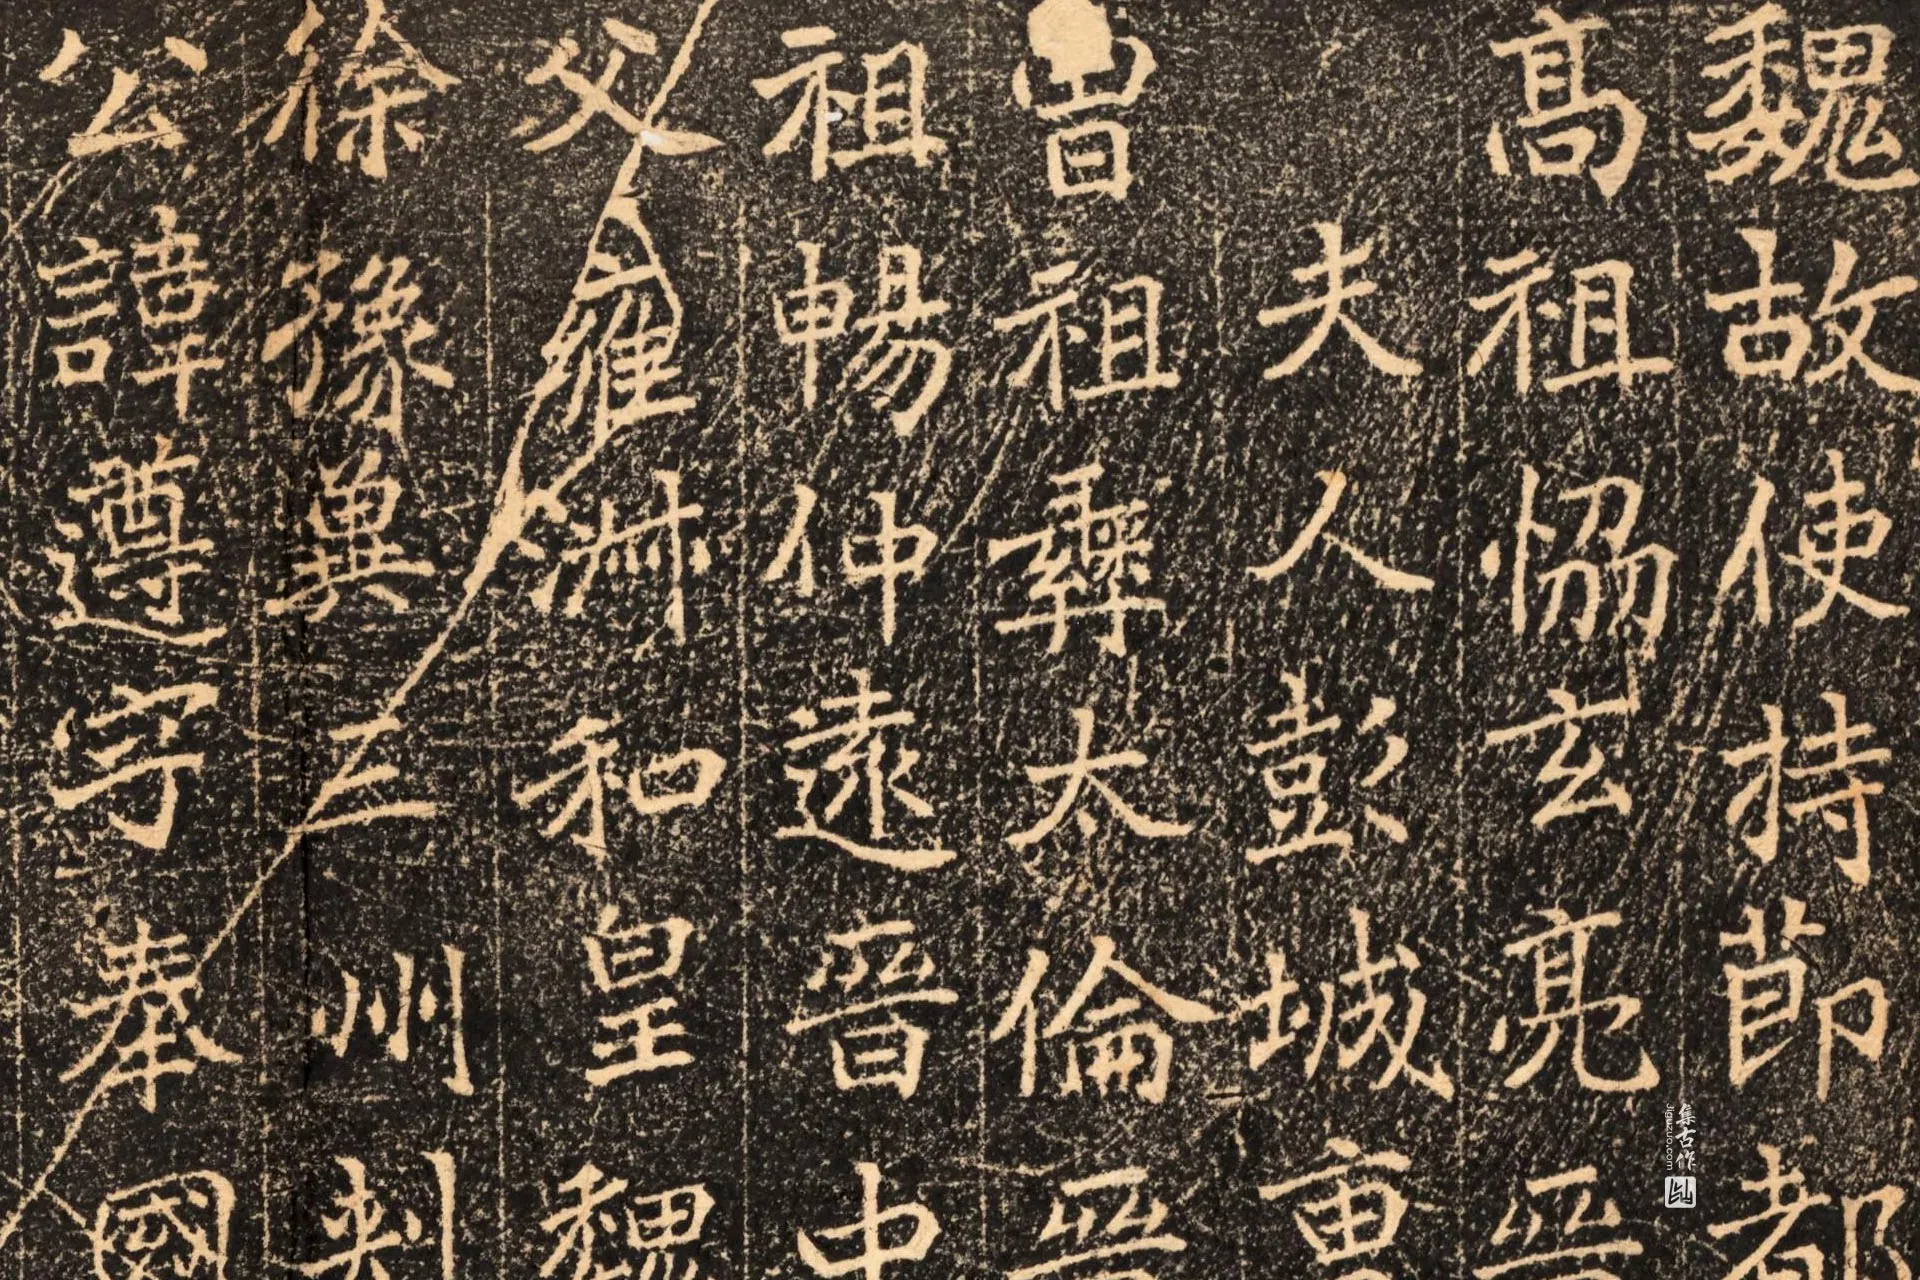 魏故使持節都
高祖恊玄亮晉
夫人彭城
曾祖彝太倫晉
祖暢仲遠晉中
父雍淑和皇魏
徐豫冀三州刺
公諱遵字奉國
集古作
Jiguzuo.com